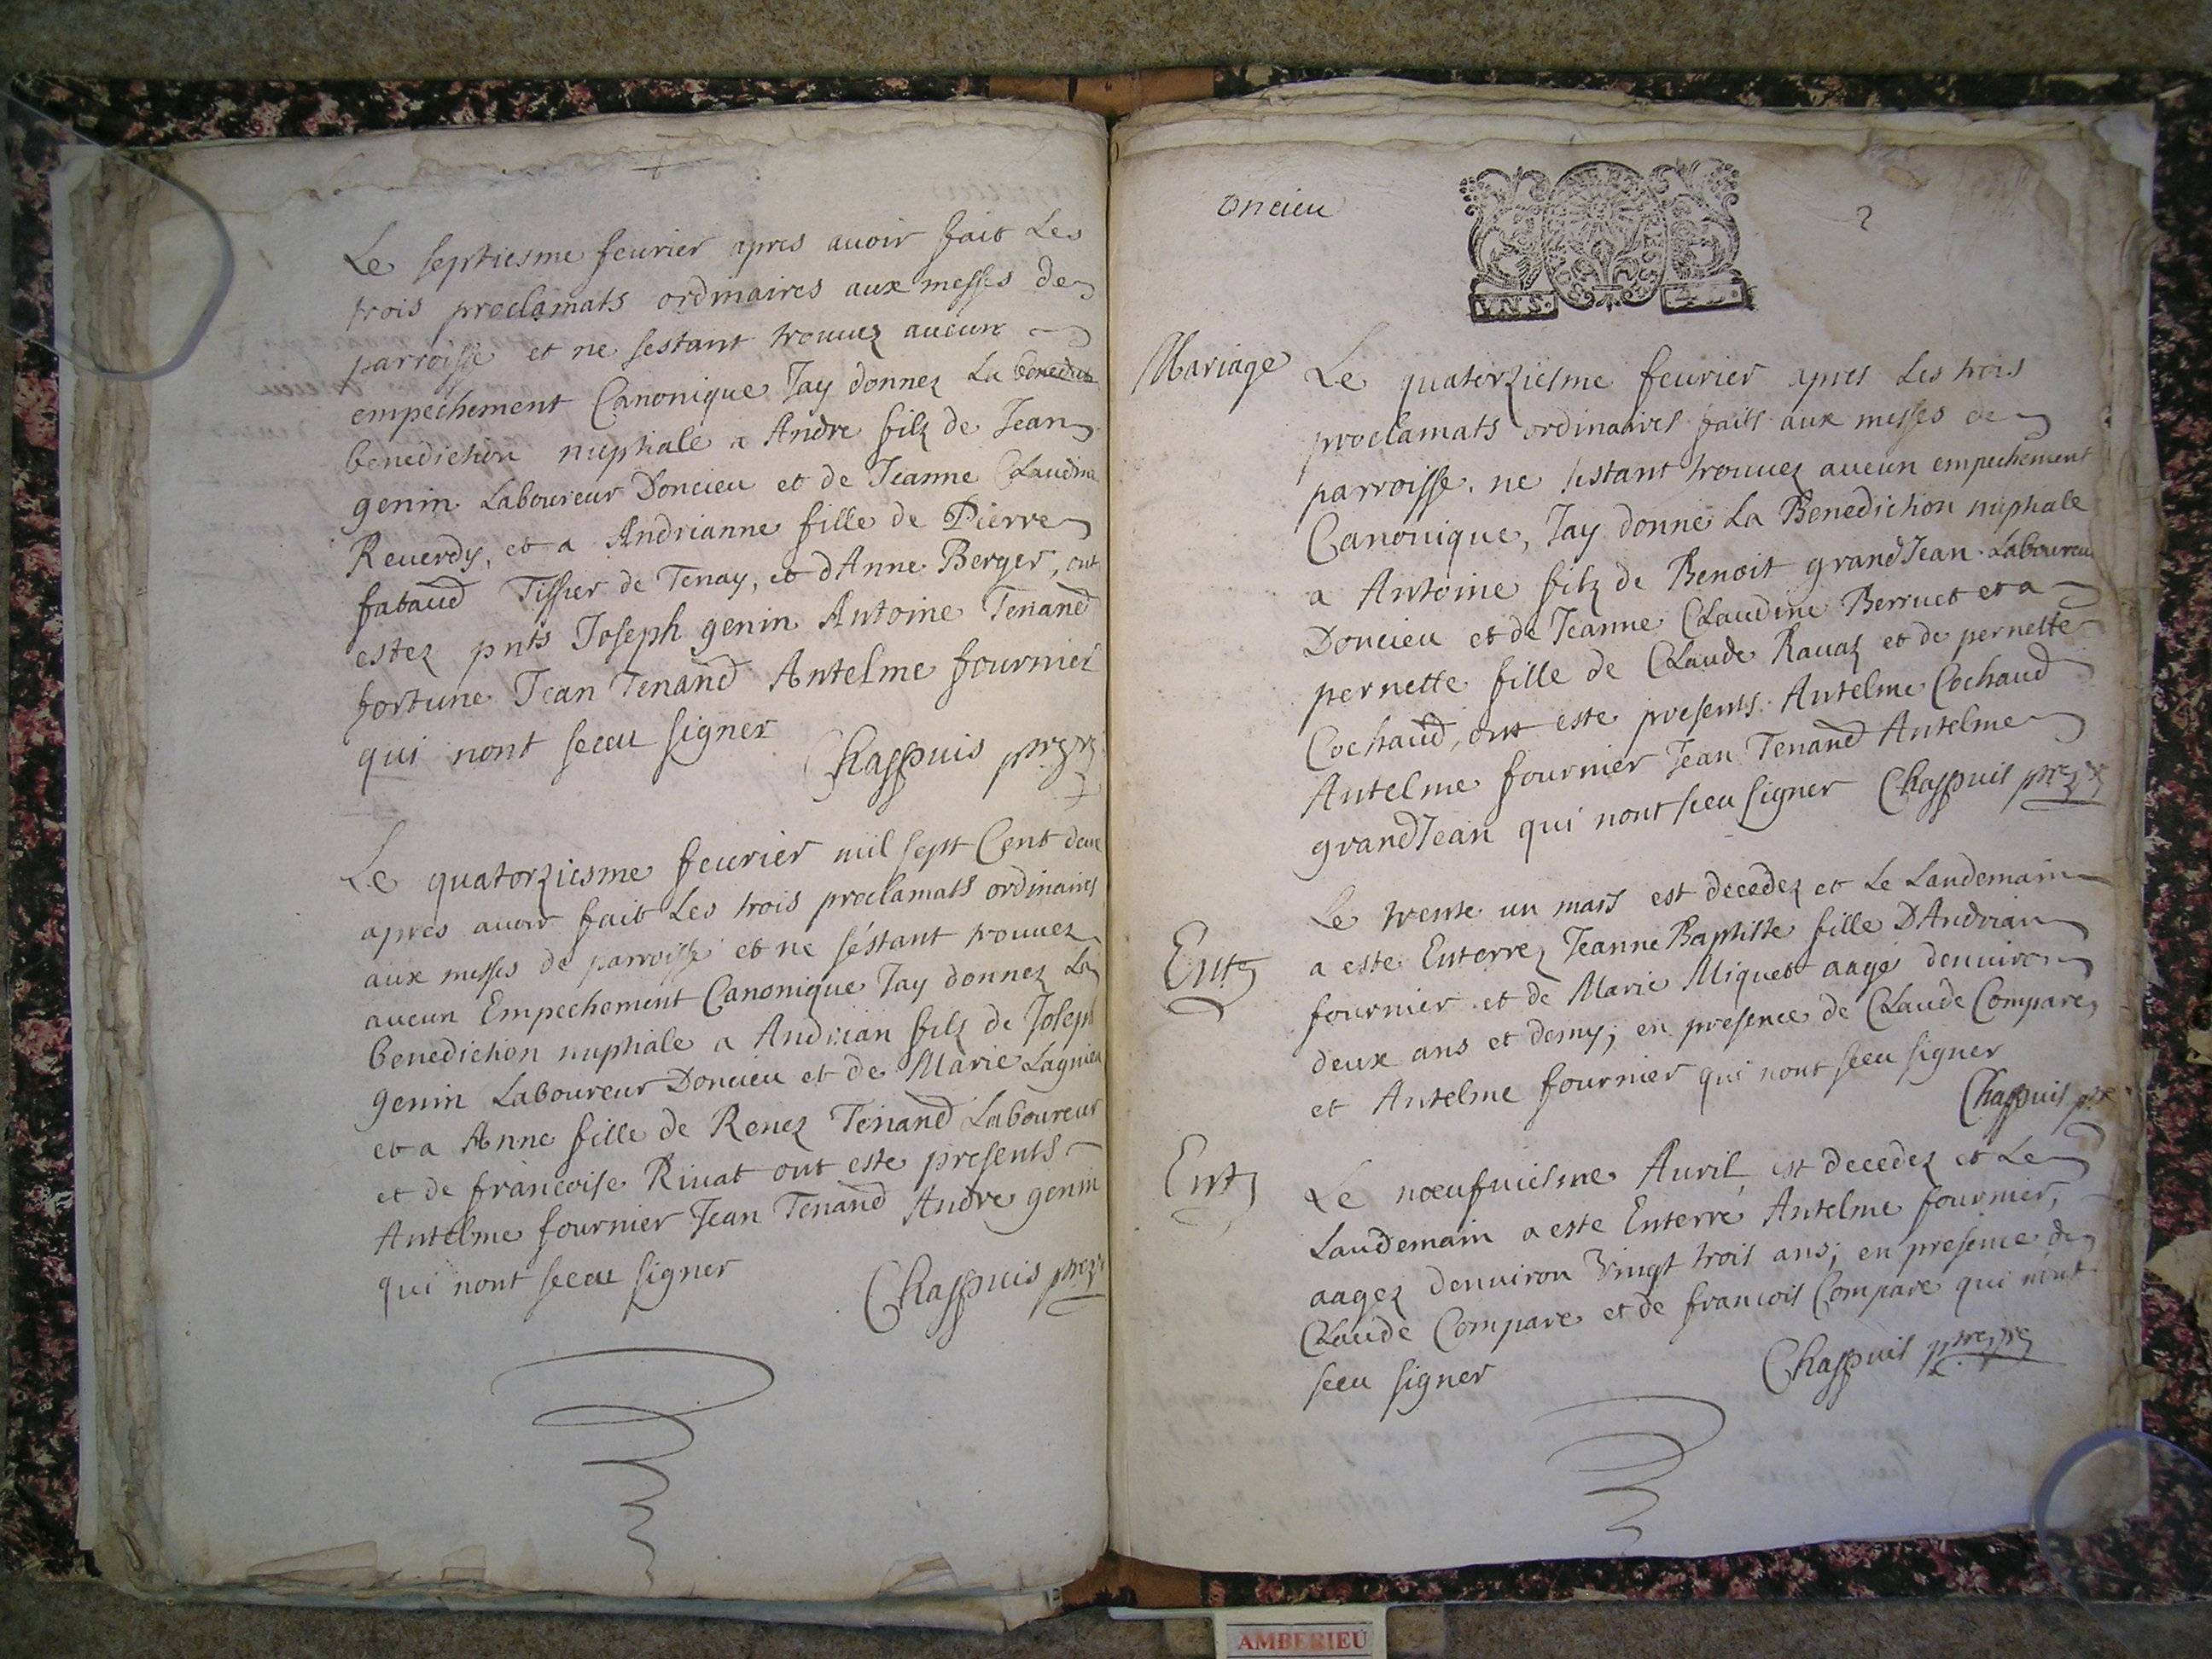 Le septiesme feurier apres auoir fait Les
trois proclamats ordinaires aux messes de
parroisse et ne sestant trouuez aucun
empechement Canonique Jay donnez La
benediction nuptiale a Andre filz de Jean
genin Laboureur Doncieu et de Jeanne Claudine
Reuerdy, et a Andrianne fille de Pierre
fabaud Tissier de Tenay, et dAnne Berger, ont
estez pnts Joseph genin Antoine Tenand
fortune Jean Tenand Antelme fournier
qui nont sceau signer
Chappuis
Le quatorziesme feurier mil sept Cent deux
apres auoir fait Les trois proclamats ordinaires
aux messes de parroisse et ne séstant trouuez
aucun Empechement Canonique Jay donnez La
benediction nuptiale a Andrian filz de Joseph
genin Laboureur Doncieu et de Marie Lagnieu
et a Anne fille de Renez Tenand Laboureur
et de francoise Riuat ont este presents
Antelme fournier Jean Tenand Andre genin
qui nont sceau signer
Chappuis
oncieu
2
Mariage
Le quatorziesme feurier apres Les trois
proclamats ordinaires faits aux messes de
parroisse. ne sestant trouuez aucun empechement
Canonique, Jay donné La Benediction nuptiale
a Antoine filz de Benoit grandJean Laboureur
Doncieu et de Jeanne Claudine Berruet et a
pernette fille de Claude Rauaz et de pernette
Cochaud, ont este presents Antelme Cochaud
Antelme fournier Jean Tenand Antelme
grandJean qui nont sceu signer Chappuis
Le trente un mars est decedez et Le Landemain
Ent
a este Enterrez Jeanne Baptiste fille DAndrian
fournier et de Marie Miquet aagé denuiron
deux ans et demy; en presence de Claude Compare
et Antelme fournier qui nont sceu signer
Chappuis ptre
Ent
Le noeufuiesme Auril est decedez et Le
Landemain a este Enterré Antelme fournier,
aagez denuiron Vingt trois ans; en presence de
Claude Compare et de francois Compare qui nont
sceu signer
Chappuis
AMBERIEU